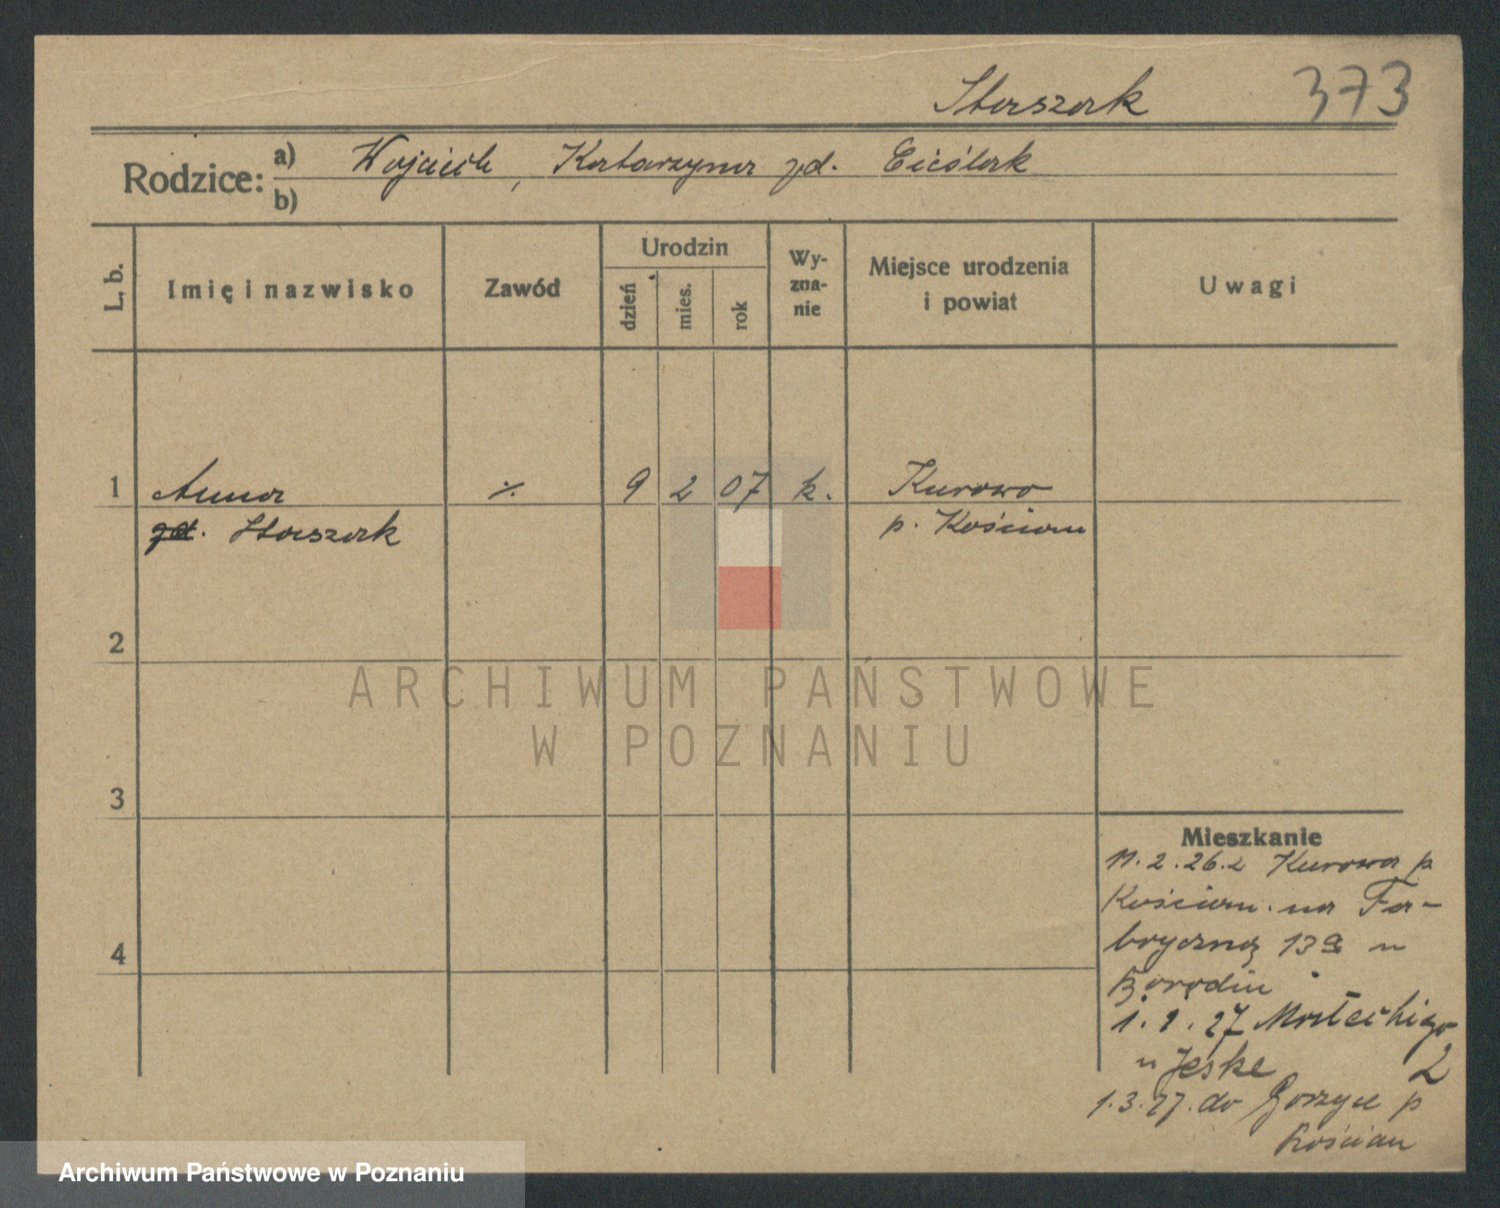 Staszak 373
Rodzice: a) Wojciech, Katarzyna zd. Cieślak
b)
L. b.
Imię i nazwisko
Zawód
Urodzin
dzień
mies.
rok
Wy-
zna-
nie
Miejsce urodzenia
i powiat
Uwagi
1 Anna % 9 2 07 k. Kurowo
zd. Staszak p. Kościan
2
3
4
Mieszkanie
11.2.26.z Kurowa p
Kościan. na Fa-
bryczną 13a u
1.1.27 Mosteckigo
u Jeske 2
1.3.27. do Gorzyce p
Kościan
ARCHIWUM PAŃSTWOWE
W POZNANIU
Archiwum Państwowe w Poznaniu